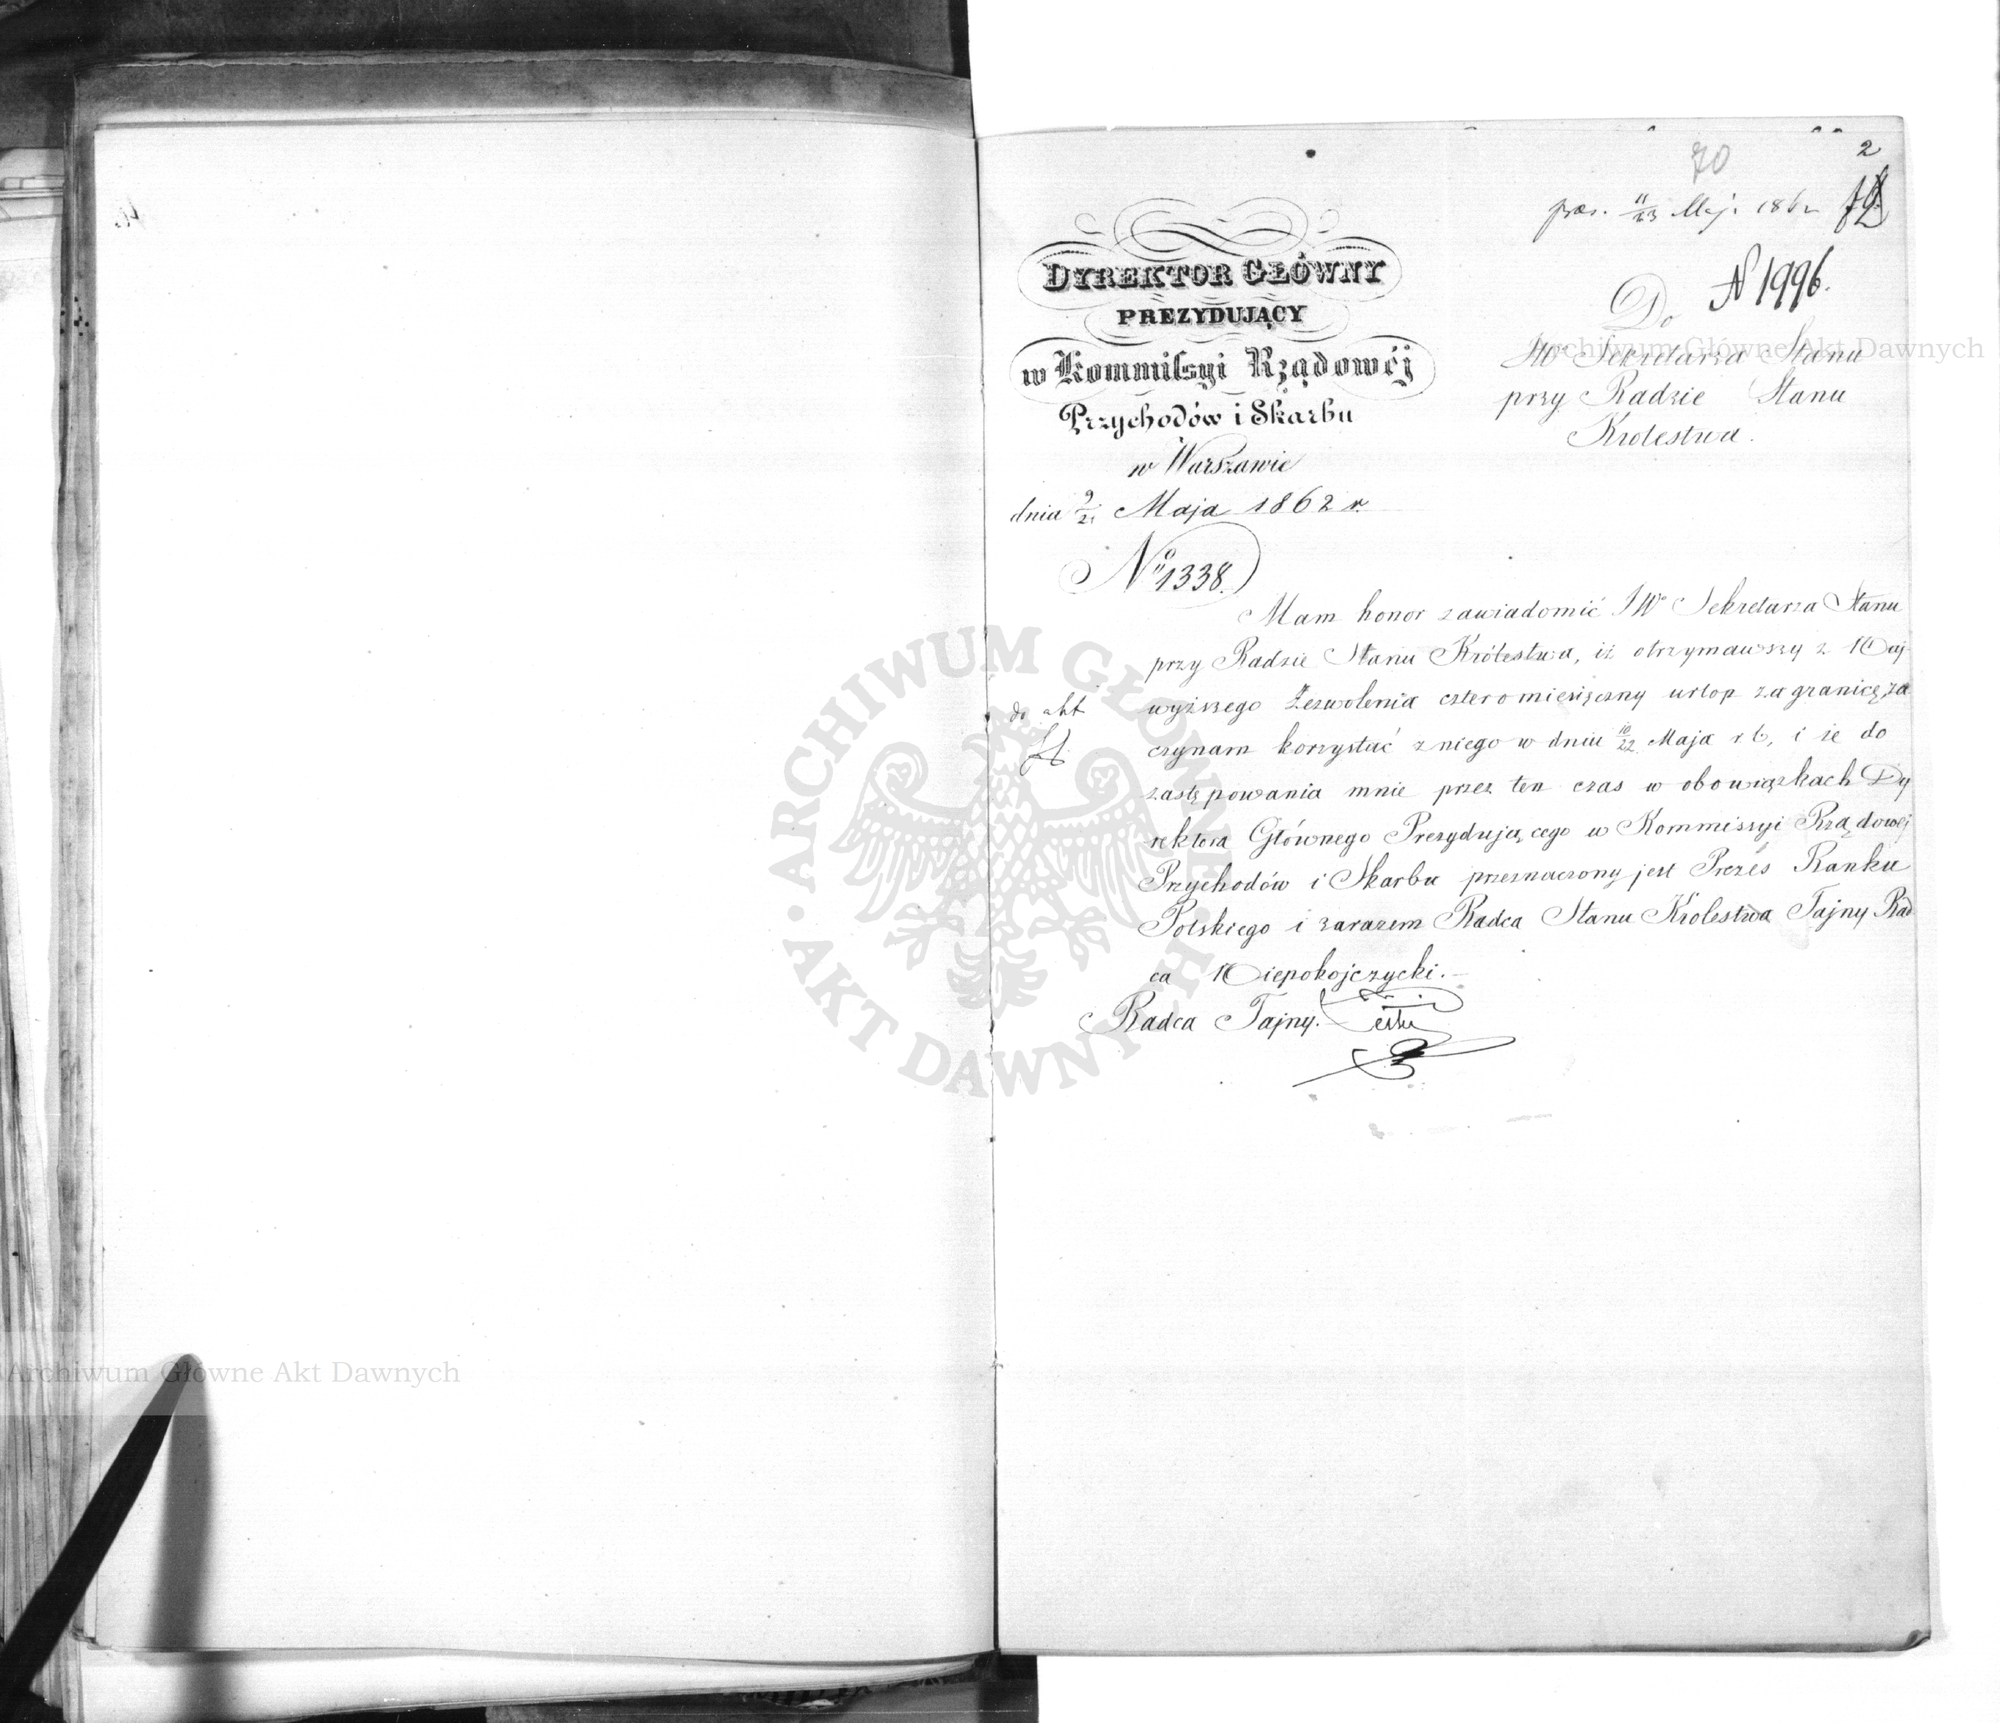 70
2
præs. 11/23 Maj. 1862
N 1996.
DYREKTOR GŁÓWNY
PREZYDUJĄCY
w Kommissyi Rządowéj
Przychodów i Skarbu
w Warszawie
dnia 9/21 Maja 1862 r.
No 1338.
Do
JW Sekretarza Stanu
przy Radzie Stanu
Krolestwa.
Mam honor zawiadomić JWo Sekretarza Stanu
przy Radzie Stanu Królestwa, iż otrzymawszy z Naj-
wyższego Zezwolenia czteromiesięczny urlop zagranicę, za
czynam korzystać z niego w dniu 10/22 Maja r b, i że do
zastępowania mnie przez ten czas w obowiązkach Dy
rektora Głównego Prezydującego w Kommissyi Rządowej
Przychodów i Skarbu przeznaczony jest Prezes Banku
Polskiego i zarazem Radca Stanu Krolestwa Tajny Rad
ca Niepokojczycki.—
Radca Tajny.
do akt
ARCHIWUM GŁÓWNE AKT DAWNYCH
Archiwum Główne Akt Dawnych
Archiwum Główne Akt Dawnych